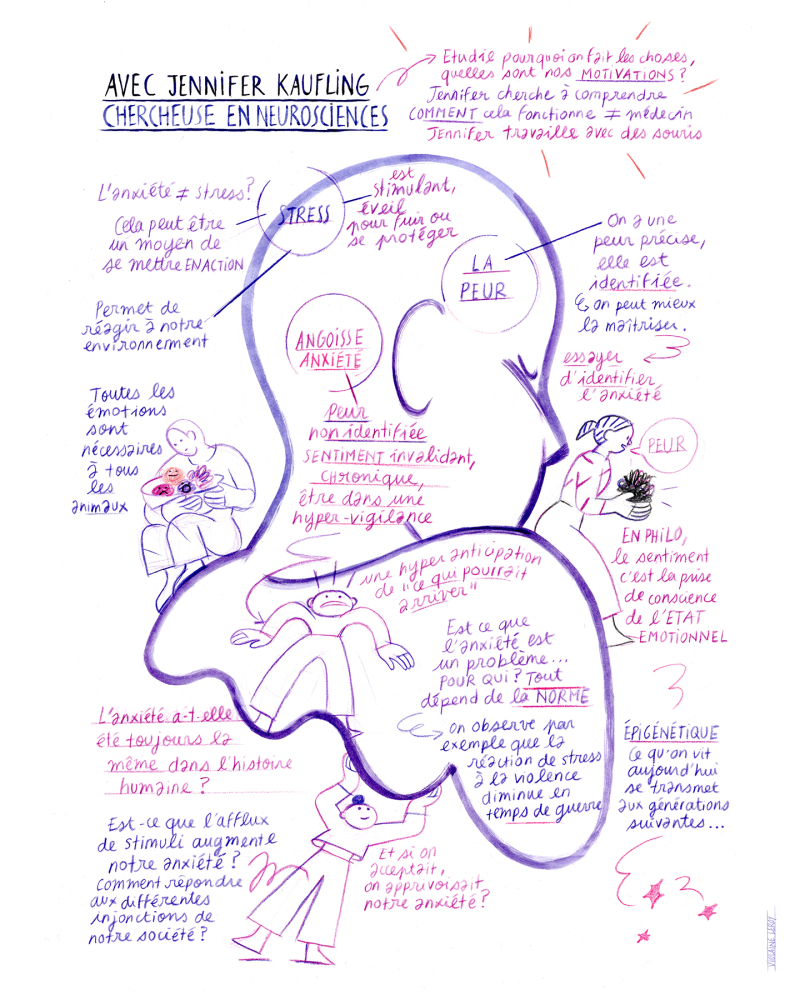 AVEC JENNIFER KAUFLING
CHERCHEUSE EN NEUROSCIENCES
Etudie pourquoi on fait les choses,
quelles sont nos MOTIVATIONS ?
Jennifer cherche à comprendre
COMMENT cela fonctionne ≠ médecin
Jennifer travaille avec des souris
L'anxiété ≠ stress ?
Cela peut être
un moyen de
se mettre EN ACTION
Permet de
réagir à notre
environnement
STRESS
est
stimulant,
éveil
pour fuir ou
se protéger
LA
PEUR
On a une
peur précise,
elle est
identifiée.
on peut mieux
la maîtriser.
essayer
d'identifier
l'anxiété
ANGOISSE
ANXIÉTÉ
Peur
non identifiée
SENTIMENT invalidant,
CHRONIQUE,
être dans une
hyper-vigilance
Toutes les
émotions
sont
nécessaires
à tous
les
animaux
PEUR
EN PHILO,
le sentiment
c'est la prise
de conscience
de l'ETAT
EMOTIONNEL
une hyper anticipation
de "ce qui pourrait
arriver"
Est ce que
l'anxiété est
un problème...
POUR QUI ? Tout
dépend de la NORME
on observe par
exemple que la
réaction de stress
à la violence
diminue en
temps de guerre
L'anxiété a-t-elle
été toujours la
même dans l'histoire
humaine ?
Est-ce que l'afflux
de stimuli augmente
notre anxiété ?
Comment répondre
aux différentes
injonctions de
notre société ?
Et si on
acceptait,
on apprivoisait
notre anxiété ?
ÉPIGÉNÉTIQUE
Ce qu'on vit
aujourd'hui
se transmet
aux générations
suivantes...